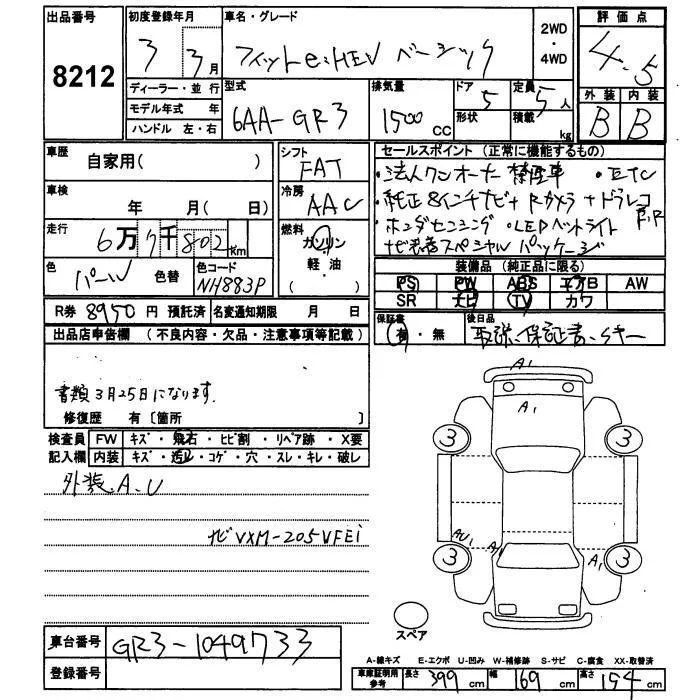 出品番号 初度登録年月 車名・グレード 2WD ・ 4WD 評価点
8212 3 3月 フィットe:HEV ベーシック 4.5
ディーラー・並行 型式 排気量 ドア 5 定員 5人 外装 内装
モデル年式 年 6AA-GR3 1500cc 形状 積載 kg B B
ハンドル 左・右
車歴 自家用( ) シフト FAT セールスポイント (正常に機能するもの)
車検 年 月( 日) 冷房 AAC ・法人ワンオーナー 禁煙車 ・ETC
走行 6万7千802Km 燃料 ガソリン 軽・油 ・純正8インチナビ+Rカメラ+ドラレコ F,R
・ホンダセンシング ・LEDヘッドライト
ナビ装着スペシャルパッケージ
色 パール 色替 色コード NH883P
装備品 (純正品に限る)
PS PW ABS エアB AW
SR ナビ TV カワ
R券 8950円 預託済 名変通知期限 月 日
保証書 有・無 後日品 取説、保証書、Sキー
出品店申告欄 (不良内容・欠品・注意事項等記載)
書類3月25日になります。
修復歴 有〔箇所 〕
検査員 FW キズ・飛石・ヒビ割・リペア跡・X要
記入欄 内装 キズ・汚レ・コゲ・穴・スレ・キレ・破レ
外装A.U
ナビVXM-205VFEi
A1
A1
3 3
AU1 A1 A1
3 3
スペア
車台番号 GR3-1049733
登録番号
A-線キズ E-エクボ U-凹み W-補修跡 S-サビ C-腐食 XX-取替済
車庫証明用参考 長さ 399cm 幅 169cm 高さ 154cm